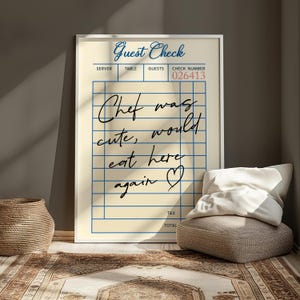 Guest Check
SERVER TABLE GUESTS CHECK NUMBER
026413
Chef was
cute, would
eat here
again ♡
TAX
TOTAL